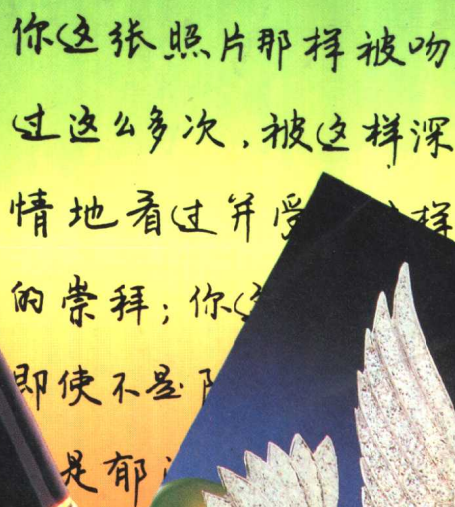 你这张照片那样被吻
过这么多次，被这样深
情地看过并受样
的崇拜；你
即使不是
是郁